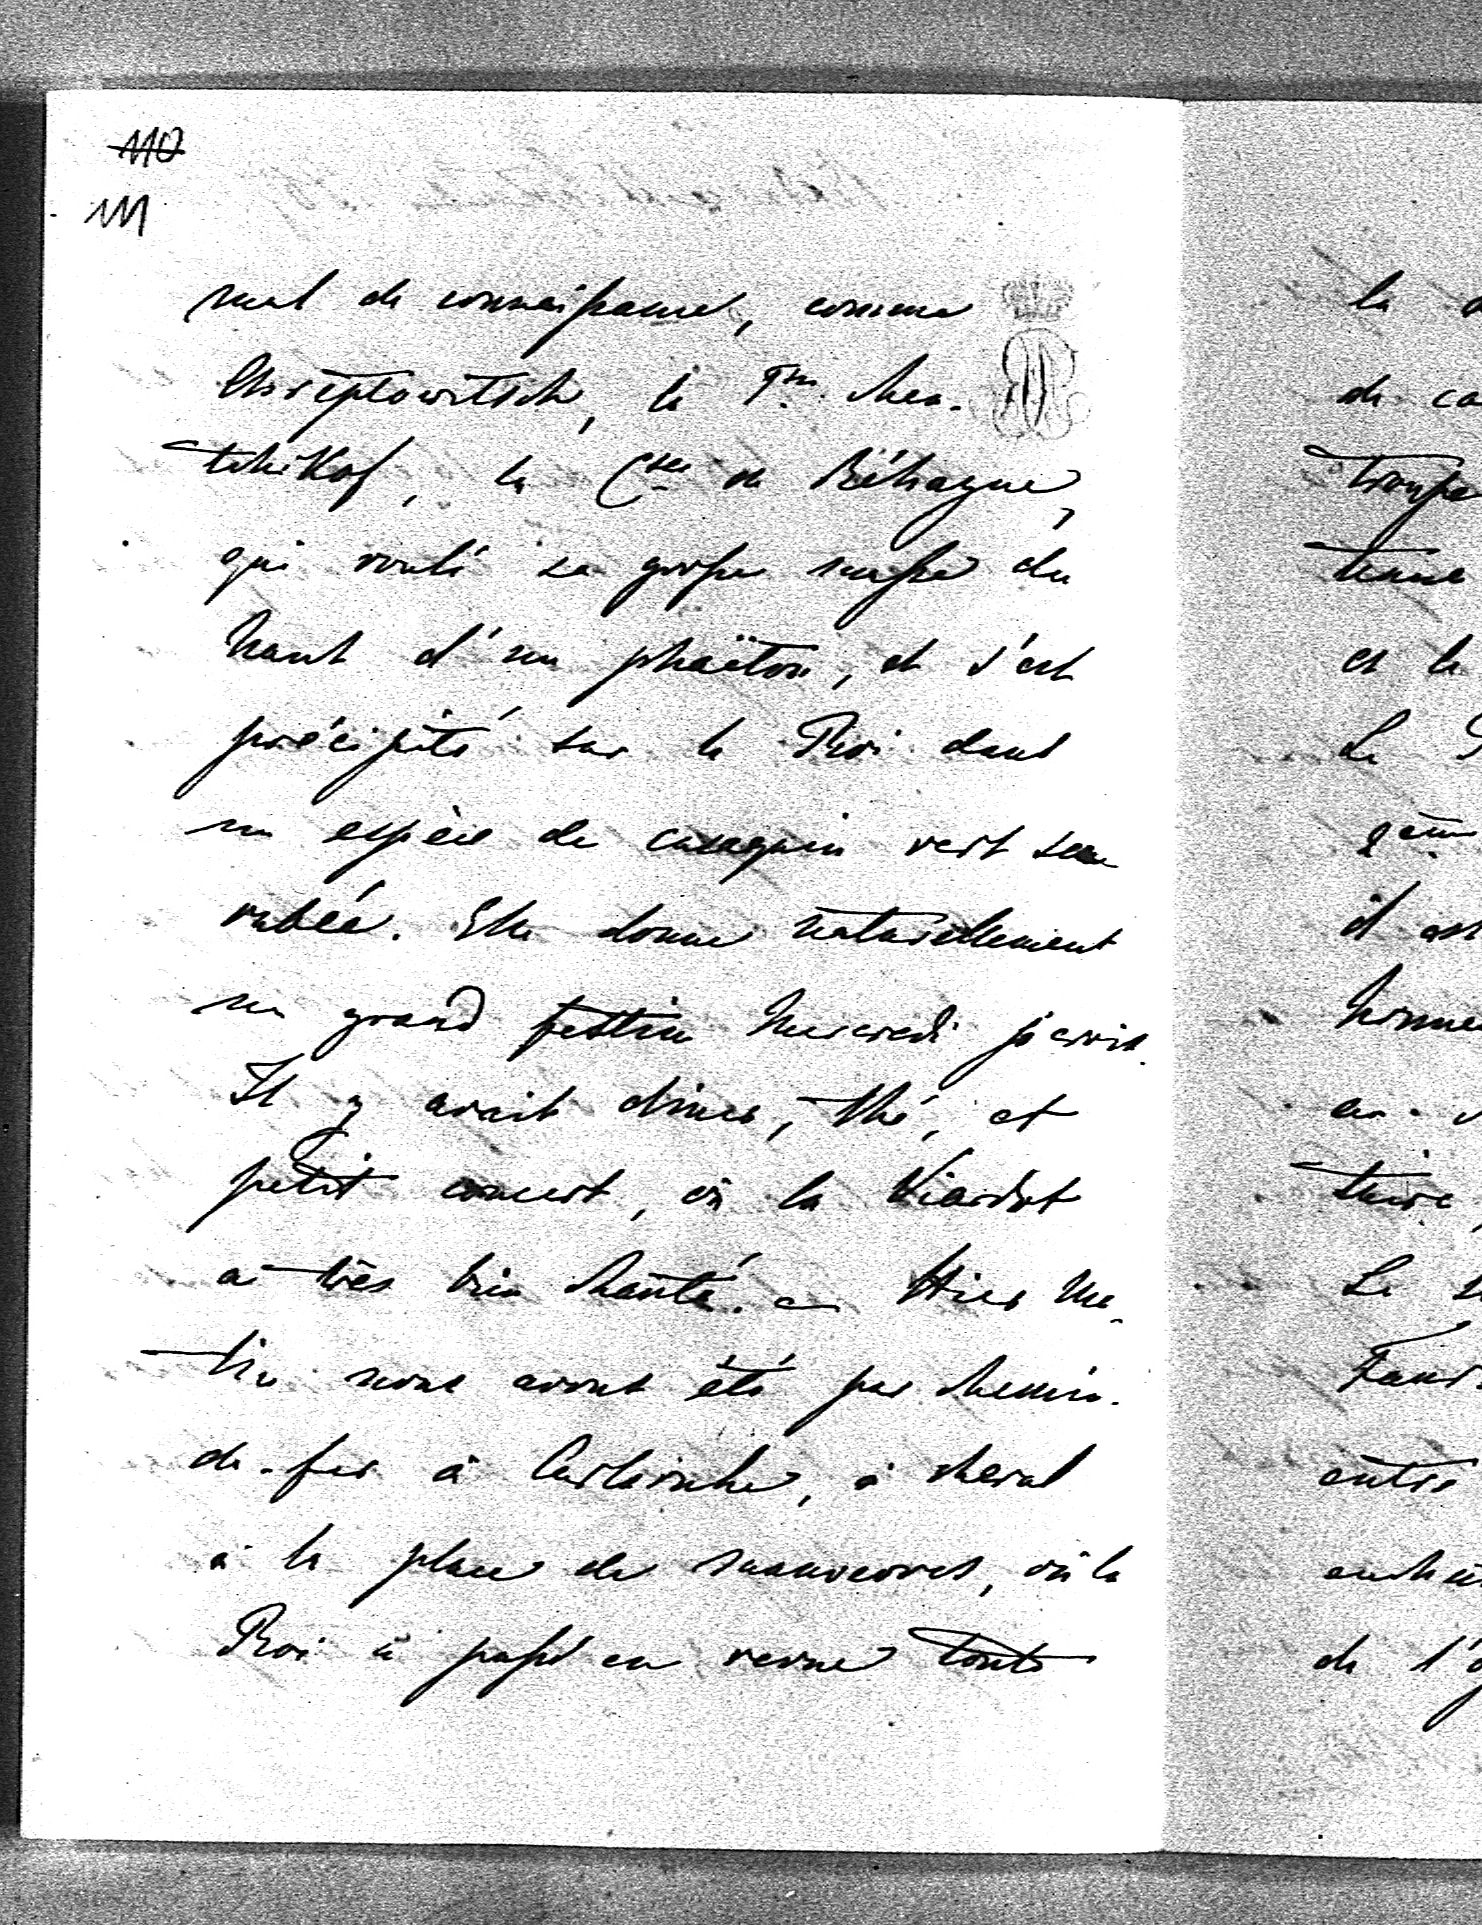 110
111
de connaissance, comme
Chreptowitsch, la Pss. Men-
tchikof, la Csse de Béhague,
qui roulé sa grosse masse du
haut d'un phaëton, et s'est
précipité sur le Roi dans
un espèce de casaquin vert
Elle donne naturellement
un grand festin Mercredi
Il y avait diner, thé, et
petit concert, où la Viardot
a très bien chanté. Hier ma-
tin nous avons été par chemin-
de-fer à Carlsruhe, à cheval
à la place de manoeuvres, où le
Roi a passé en revue toute
la
de ca
troupe
et le
Le
il est
entre
de l'